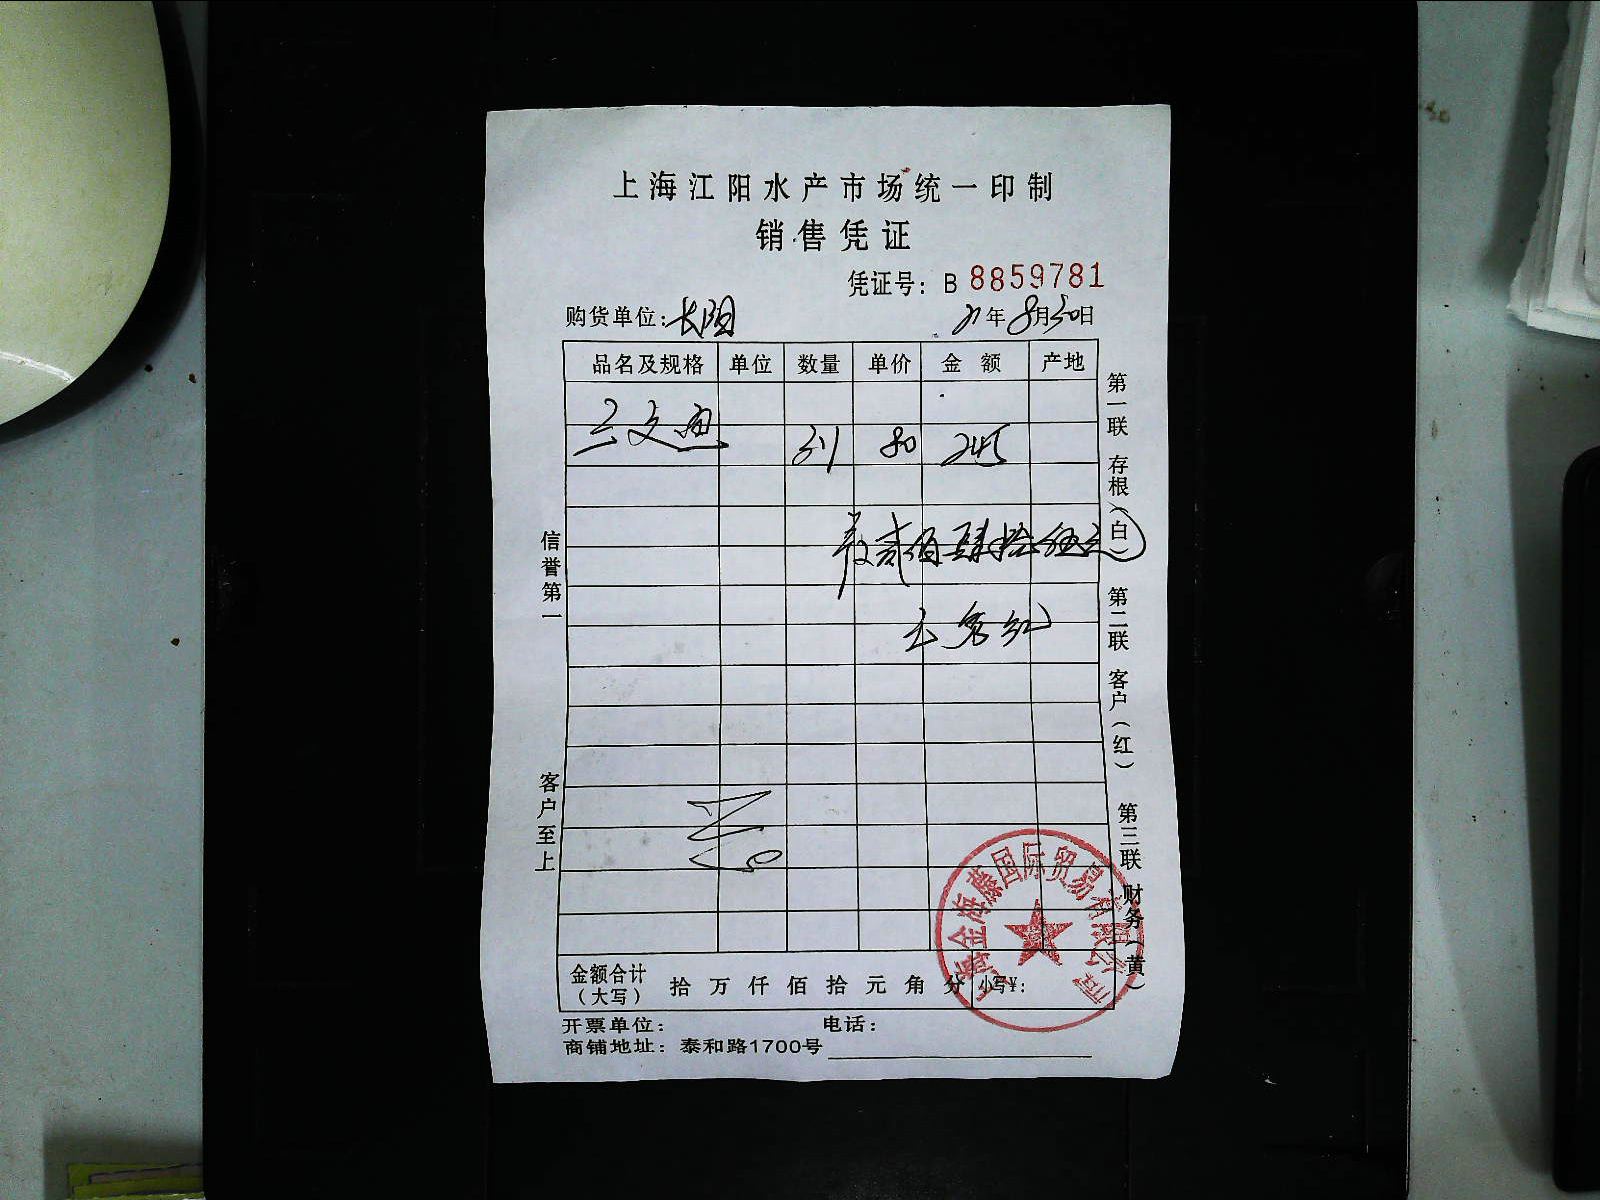 上海江阳水产市场统一印制
销售凭证
凭证号：B 8859781
购货单位：长阳 21年8月30日
品名及规格 单位 数量 单价 金额 产地
三文鱼 31 80 245
贰佰肆拾伍元
信誉第一
客户至上
第一联 存根（白） 第二联 客户（红） 第三联 财务（黄）
上海金海藤国际贸易有限公司
金额合计（大写） 拾 万 仟 佰 拾 元 角 分 小写¥：
开票单位： 电话：
商铺地址：泰和路1700号